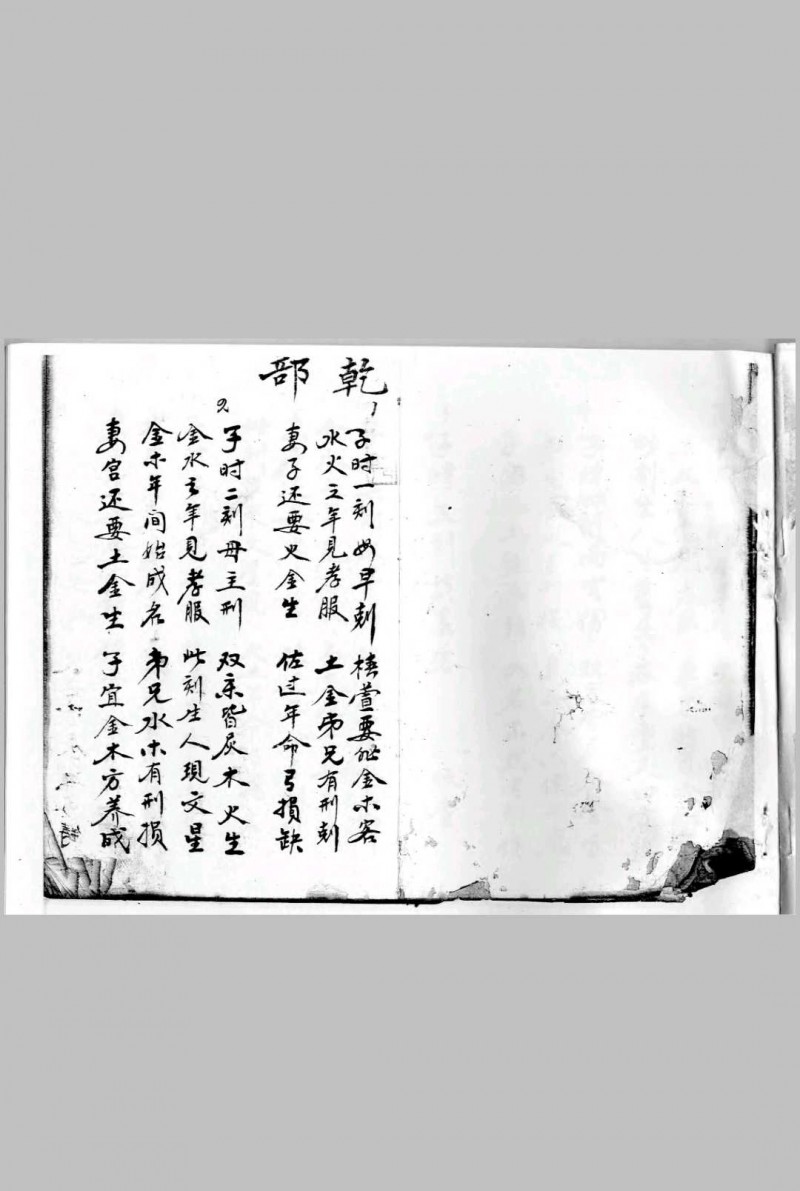 乾部
1
子时一刻母早刺 椿萱要配金木客
水火之年見孝服 土金弟兄有刑刺
妻子还要火金生 估过年命弓損缺
2
子时二刻母主刑 双亲皆辰木火生
金水之年見孝服 此刻生人現文星
金木年间始成名 弟兄水木有刑損
妻宫还要土金生 子宜金木方养成